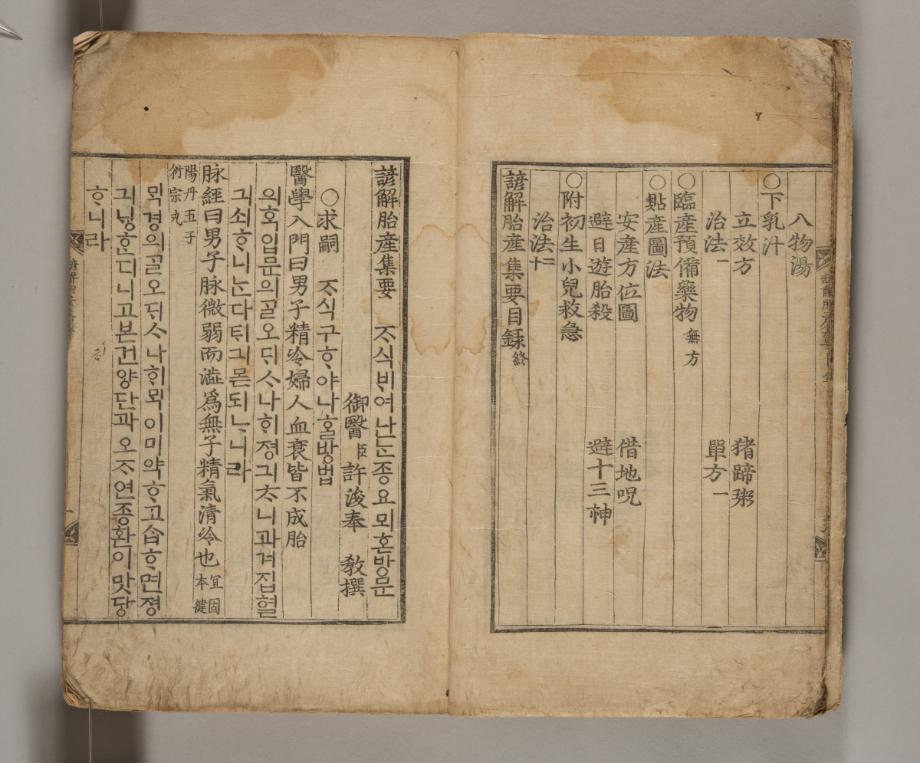 八物湯
○下乳汁
立效方 猪蹄粥
治法一 單方一
○臨産預備藥物 無方
○貼産圖法
安産方位圖 借地呪
避日遊胎殺 避十三神
○附初生小兒救急
治法二十
諺解胎産集要目録 終
諺解胎産集要 ᄌᆞ식ᄇᆡ여난ᄂᆞᆫ종요뫼혼방문
御醫臣許浚奉 敎撰
○求嗣 ᄌᆞ식구ᄒᆞ야나홀방법
醫學入門曰男子精冷婦人血衰皆不成胎
의혹입문의ᄀᆞᆯ오ᄃᆡᄉᆞ나ᄒᆡ졍긔ᄎᆞ니과겨집혈
긔쇠ᄒᆞ니ᄂᆞᆫ다ᄐᆡ긔몯되ᄂᆞ니라
脉經曰男子脉微弱而澁爲無子精氣清冷也 宜固本健
陽丹五子衍宗丸
ᄆᆡᆨ경의ᄀᆞᆯ오ᄃᆡᄉᆞ나ᄒᆡᄆᆡᆨ이미약ᄒᆞ고ᄉᆞᆸᄒᆞ면졍
긔닝ᄒᆞᆫ디니고본건양단과오ᄌᆞ연종환이맛당
ᄒᆞ니라